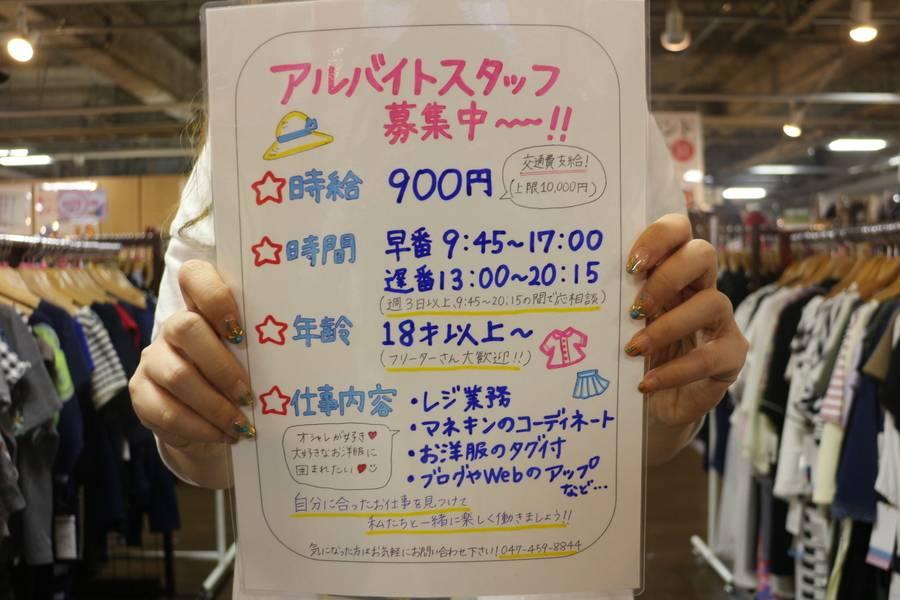 アルバイトスタッフ
募集中〜〜!!
☆時給 900円
交通費支給!
(上限10,000円)
☆時間 早番 9:45〜17:00
遅番 13:00〜20:15
(週3日以上、9:45〜20:15の間で応相談)
☆年齢 18才以上〜
(フリーターさん大歓迎!!)
☆仕事内容 ・レジ業務
・マネキンのコーディネート
・お洋服のタグ付
・ブログやWebのアップ
など…
オシャレが好き♥
大好きなお洋服に
囲まれたい♥☺
自分に合ったお仕事を見つけて
私たちと一緒に楽しく働きましょう!!
気になった方はお気軽にお問い合わせ下さい! 047-459-8844